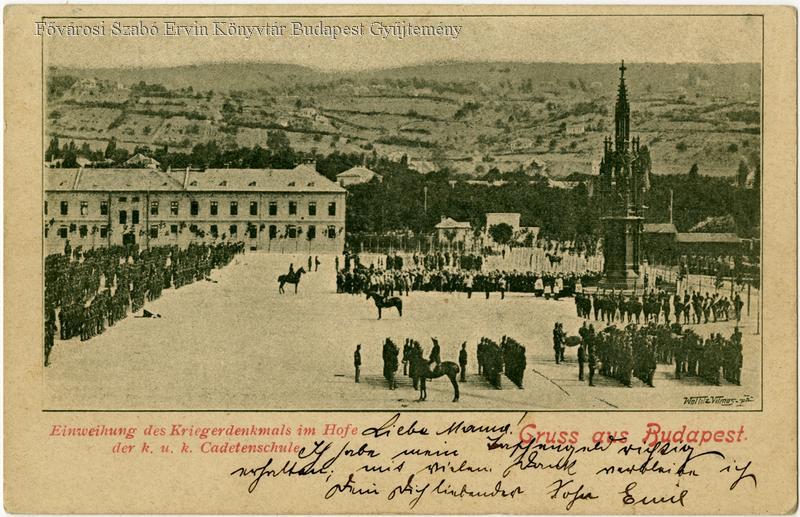 Fővárosi Szabó Ervin Könyvtár Budapest Gyűjtemény
Einweihung des Kriegerdenkmals im Hofe
der k. u. k. Cadetenschule
Gruss aus Budapest.
Liebe Mama!
Ich habe mein Taschengeld richtig
erhalten; mit vielen Dank verbleibe ich
Dein Dich liebender Sohn Emil